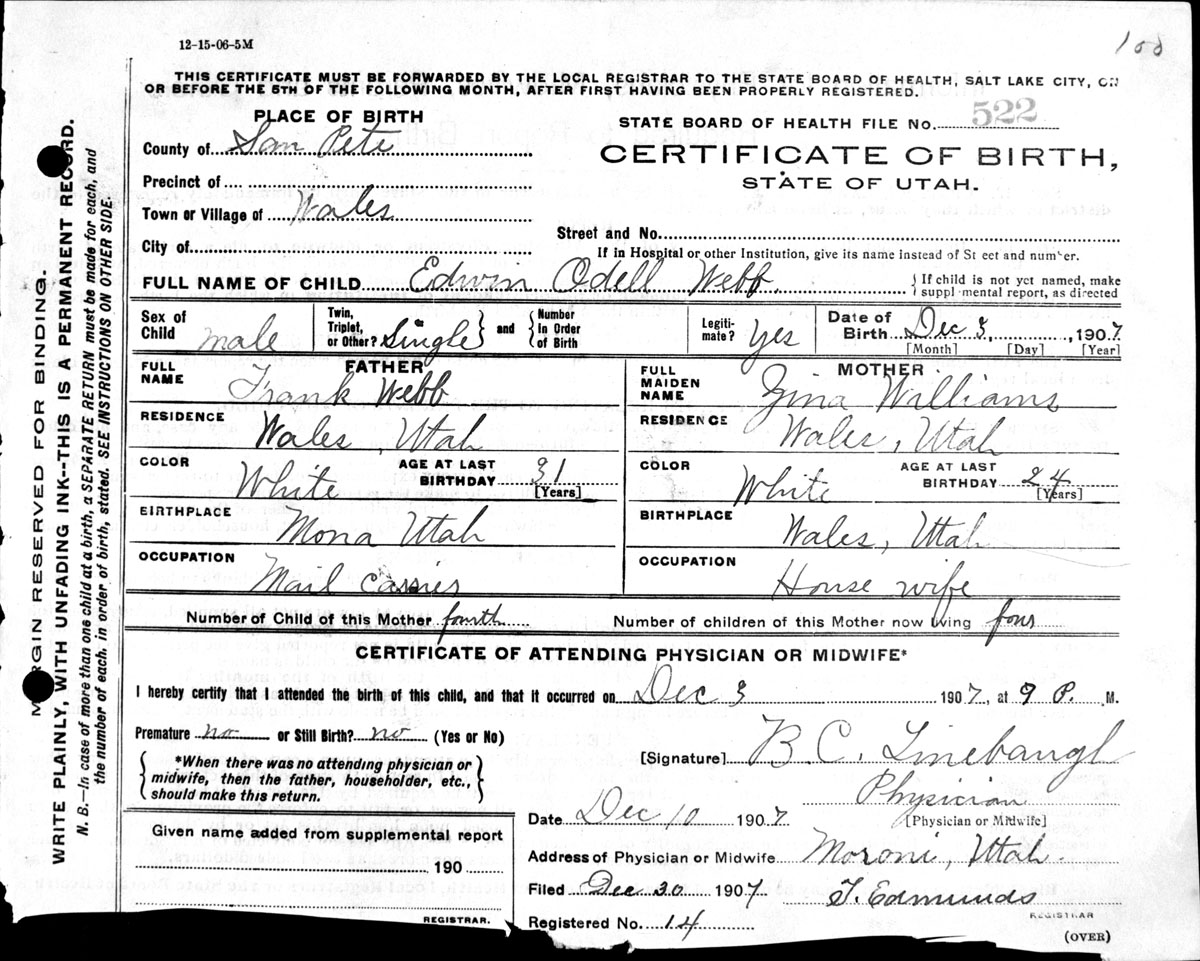 12-15-06-5M
100
THIS CERTIFICATE MUST BE FORWARDED BY THE LOCAL REGISTRAR TO THE STATE BOARD OF HEALTH, SALT LAKE CITY, ON
OR BEFORE THE 5TH OF THE FOLLOWING MONTH, AFTER FIRST HAVING BEEN PROPERLY REGISTERED.
MARGIN RESERVED FOR BINDING.
WRITE PLAINLY, WITH UNFADING INK--THIS IS A PERMANENT RECORD.
N. B.—In case of more than one child at a birth, a SEPARATE RETURN must be made for each, and
the number of each, in order of birth, stated. SEE INSTRUCTIONS ON OTHER SIDE.
PLACE OF BIRTH
STATE BOARD OF HEALTH FILE No. 522
County of San Pete
CERTIFICATE OF BIRTH,
STATE OF UTAH.
Precinct of
Town or Village of Wales
Street and No.
City of
If in Hospital or other Institution, give its name instead of Street and number.
FULL NAME OF CHILD Edwin Odell Webb.
If child is not yet named, make
supplemental report, as directed
Sex of Child male
Twin, Triplet, or Other? Single and Number In Order of Birth
Legitimate? Yes
Date of Birth Dec 3, 1907
[Month] [Day] [Year]
FATHER
FULL NAME Frank Webb
RESIDENCE Wales, Utah
COLOR White AGE AT LAST BIRTHDAY 31 [Years]
BIRTHPLACE Mona Utah
OCCUPATION Mail Carrier
MOTHER
FULL MAIDEN NAME Zina Williams
RESIDENCE Wales, Utah
COLOR White AGE AT LAST BIRTHDAY 24 [Years]
BIRTHPLACE Wales, Utah
OCCUPATION House wife
Number of Child of this Mother fourth Number of children of this Mother now living four
CERTIFICATE OF ATTENDING PHYSICIAN OR MIDWIFE*
I hereby certify that I attended the birth of this child, and that it occurred on Dec 3 1907, at 9 P. M.
Premature no or Still Birth? no (Yes or No)
[Signature] B. C. Linebaugh
*When there was no attending physician or
midwife, then the father, householder, etc.,
should make this return.
Physician
[Physician or Midwife]
Date Dec 10 1907
Given name added from supplemental report
190
REGISTRAR.
Address of Physician or Midwife Moroni, Utah.
Filed Dec 30 1907 T. Edmunds
REGISTRAR
Registered No. 14
(OVER)